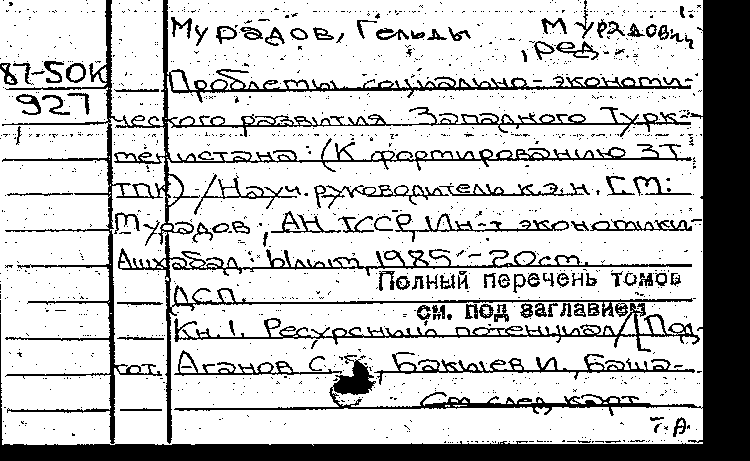 1.
Мурадов, Гельды Мурадович
, ред.
87-50К
927
Проблемы социально-экономи-
ческого развития Западного Турк-
менистана: (К формированию ЗТ
ТПК) / Науч. руководитель к.э.н. Г.М.
Мурадов; АН ТССР, Ин-т экономики.-
Ашхабад: Ылым, 1985 - 20см.
Полный перечень томов
ДСП.
см. под заглавием
Кн. 1. Ресурсный потенциал / [Под-
гот. Аганов С. , Бакшев И., Баша-
См след карт
Т.А.